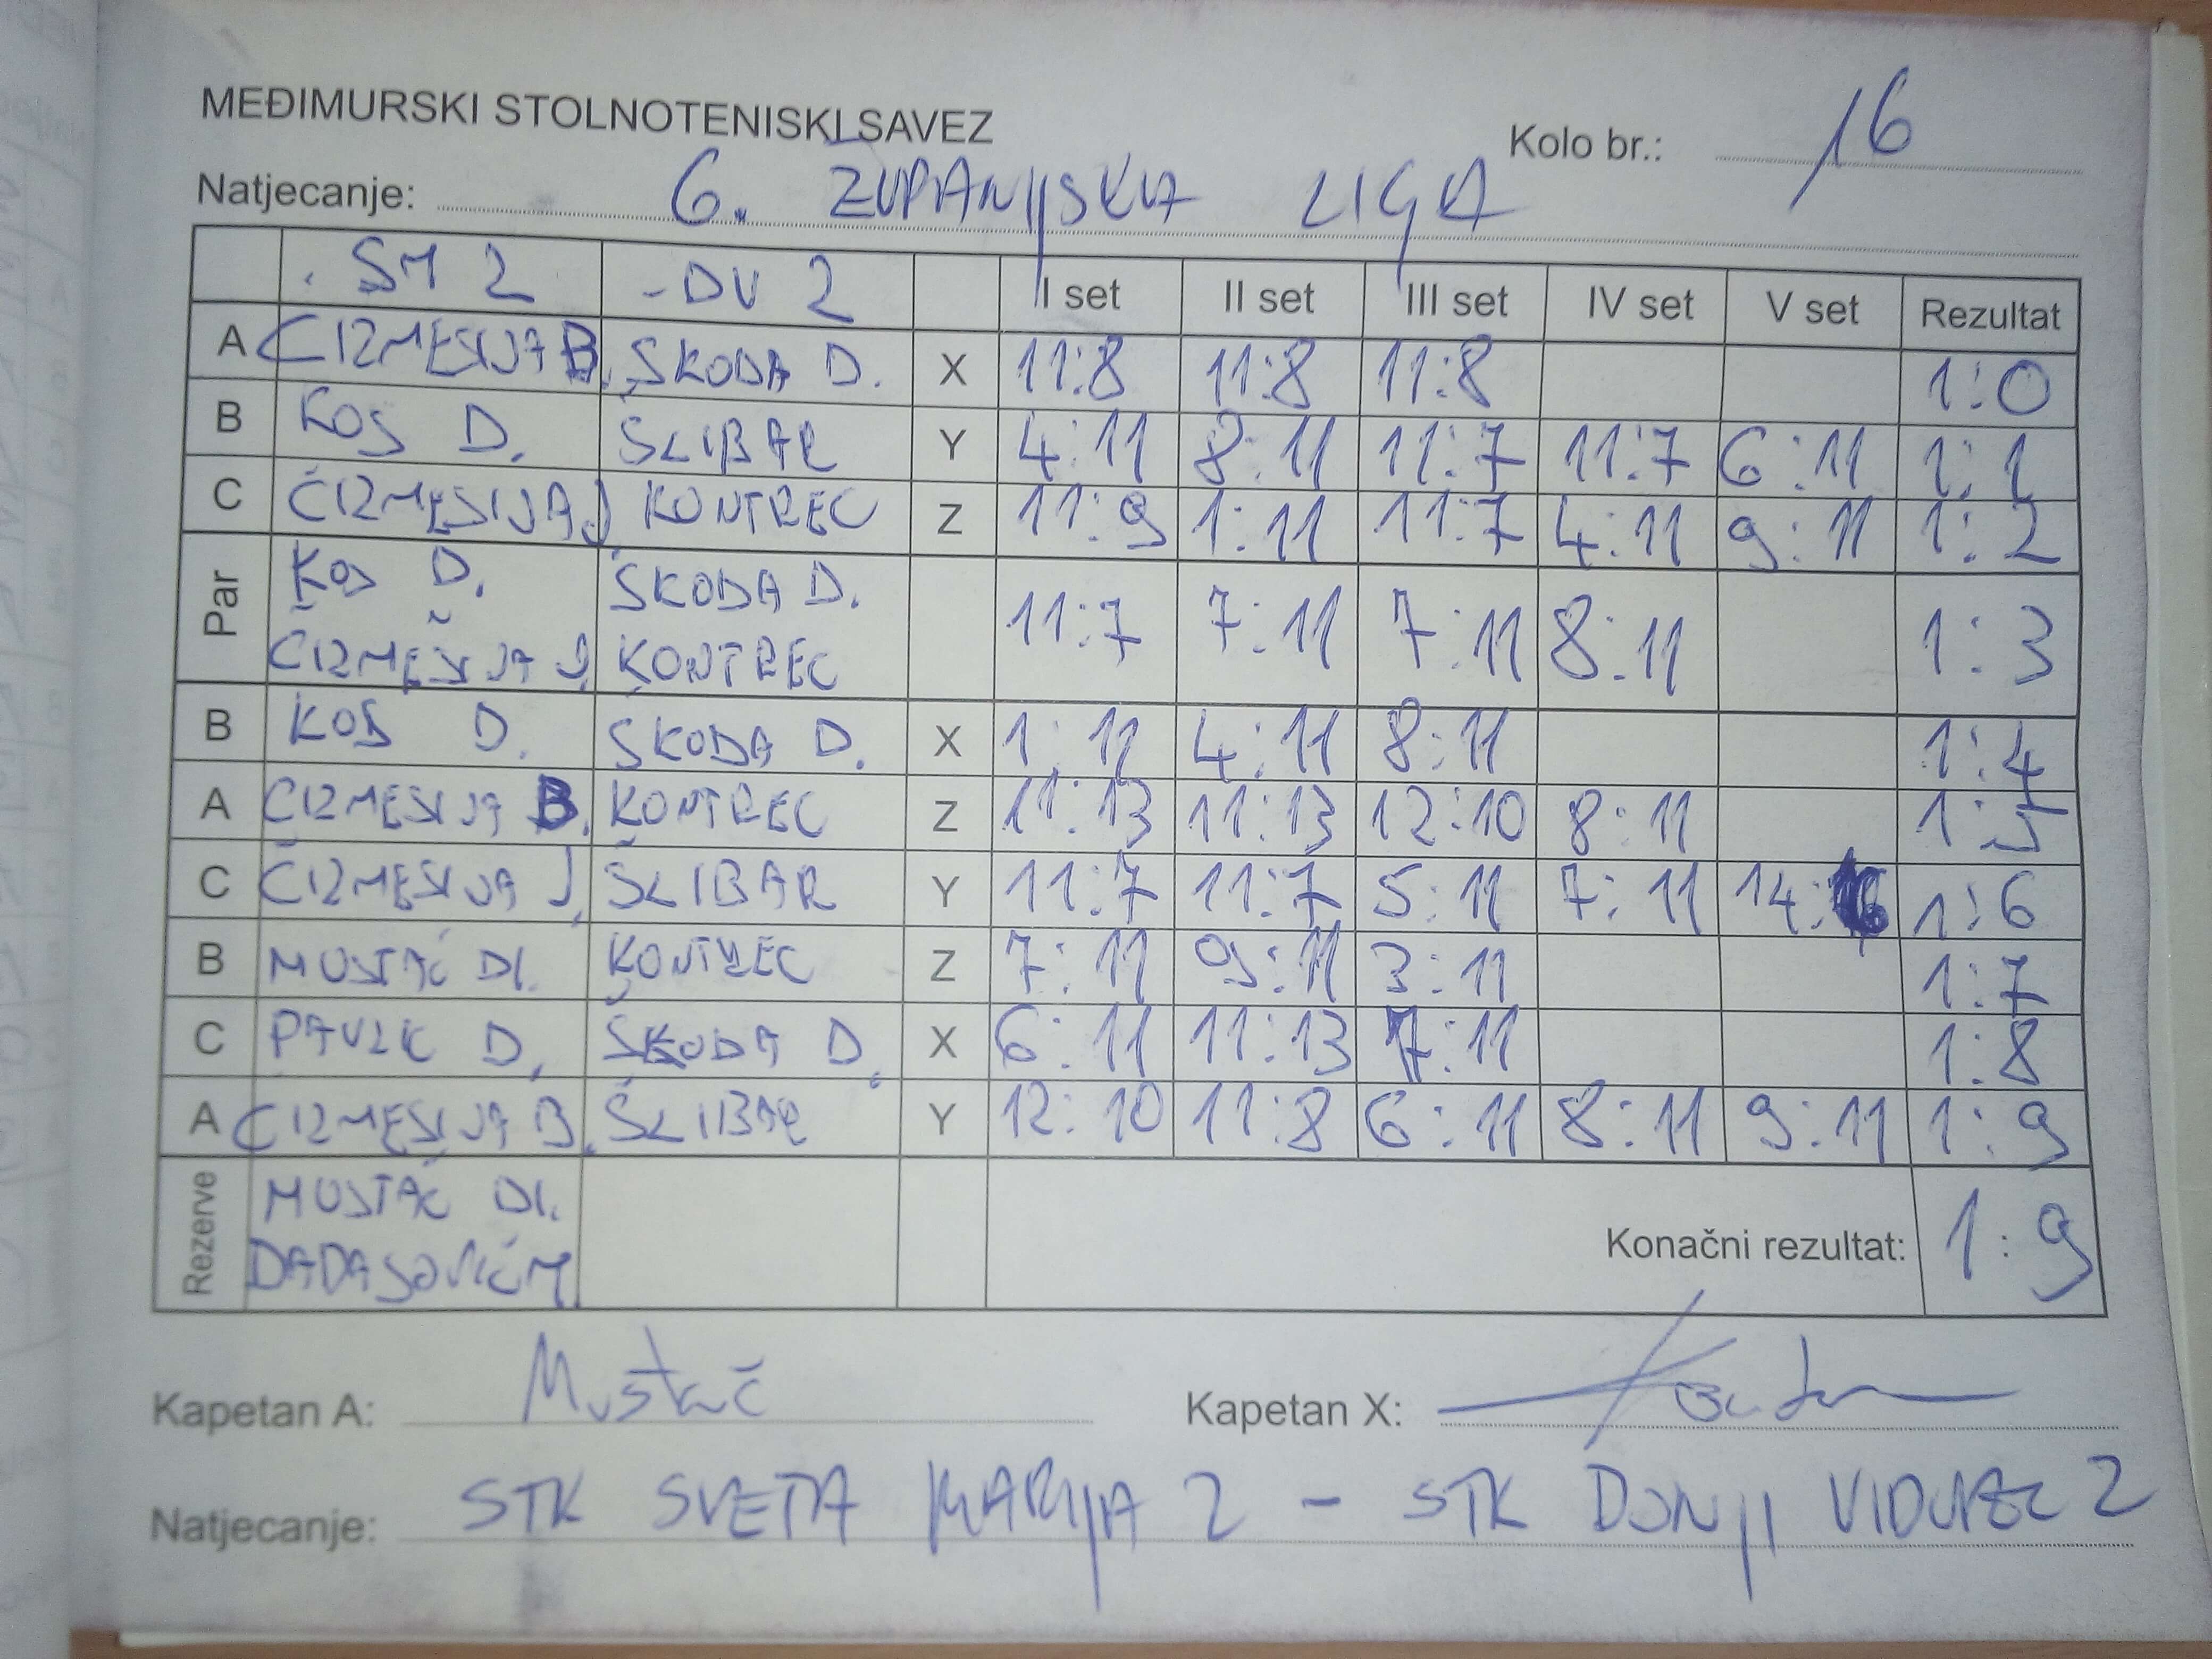 MEĐIMURSKI STOLNOTENISKI SAVEZ
Kolo br.: 16
Natjecanje: 6. ŽUPANIJSKA LIGA
SM 2 - DV 2 I set II set III set IV set V set Rezultat
A ČIZMEŠIJA B. ŠKODA D. X 11:8 11:8 11:8 1:0
B KOS D. ŠLIBAR Y 4:11 8:11 11:7 11:7 6:11 1:1
C ČIZMEŠIJA J. KONTREC Z 11:9 1:11 11:7 4:11 9:11 1:2
Par KOS D. ŠKODA D. 11:7 7:11 7:11 8:11 1:3
ČIZMEŠIJA J. KONTREC
B KOS D. ŠKODA D. X 1:11 4:11 8:11 1:4
A ČIZMEŠIJA B. KONTREC Z 11:13 11:13 12:10 8:11 1:5
C ČIZMEŠIJA J. ŠLIBAR Y 11:7 11:7 5:11 7:11 14:16 1:6
B MUSTAČ DI. KONTREC Z 7:11 9:11 3:11 1:7
C PAVLIC D. ŠKODA D. X 6:11 11:13 7:11 1:8
A ČIZMEŠIJA B. ŠLIBAR Y 12:10 11:8 6:11 8:11 9:11 1:9
Rezerve MUSTAČ DI. Konačni rezultat: 1:9
Kapetan A: Mustač Kapetan X:
Natjecanje: STK SVETA MARIJA 2 - STK DONJI VIDOVEC 2